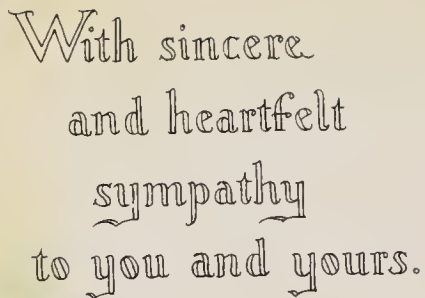 With sincere
and heartfelt
sympathy
to you and yours.